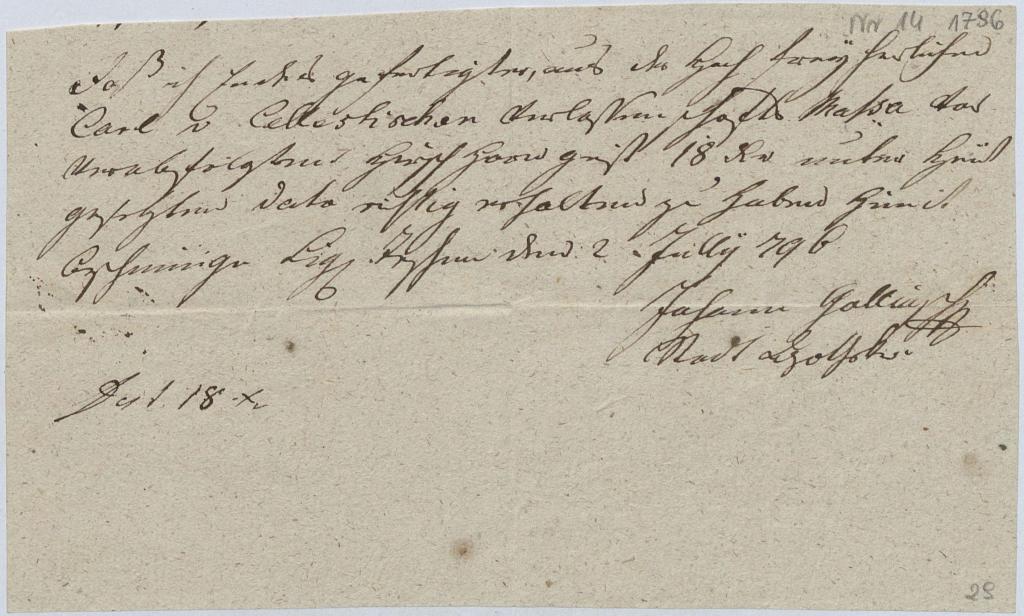 Nr 14 1786
Daß ich Endes gefertigter, aus der Hoch freyherlichen
Carl v Cellestischen Verlassenschafts Massa vor
verabfolgten Hirsch Horn geist 18 xr unter Heut
gesetzten dato richtig erhalten zu haben hiemit
bescheinige Sig Teschen den 2 Jully 796
Johann
Stadt
18 xr
29